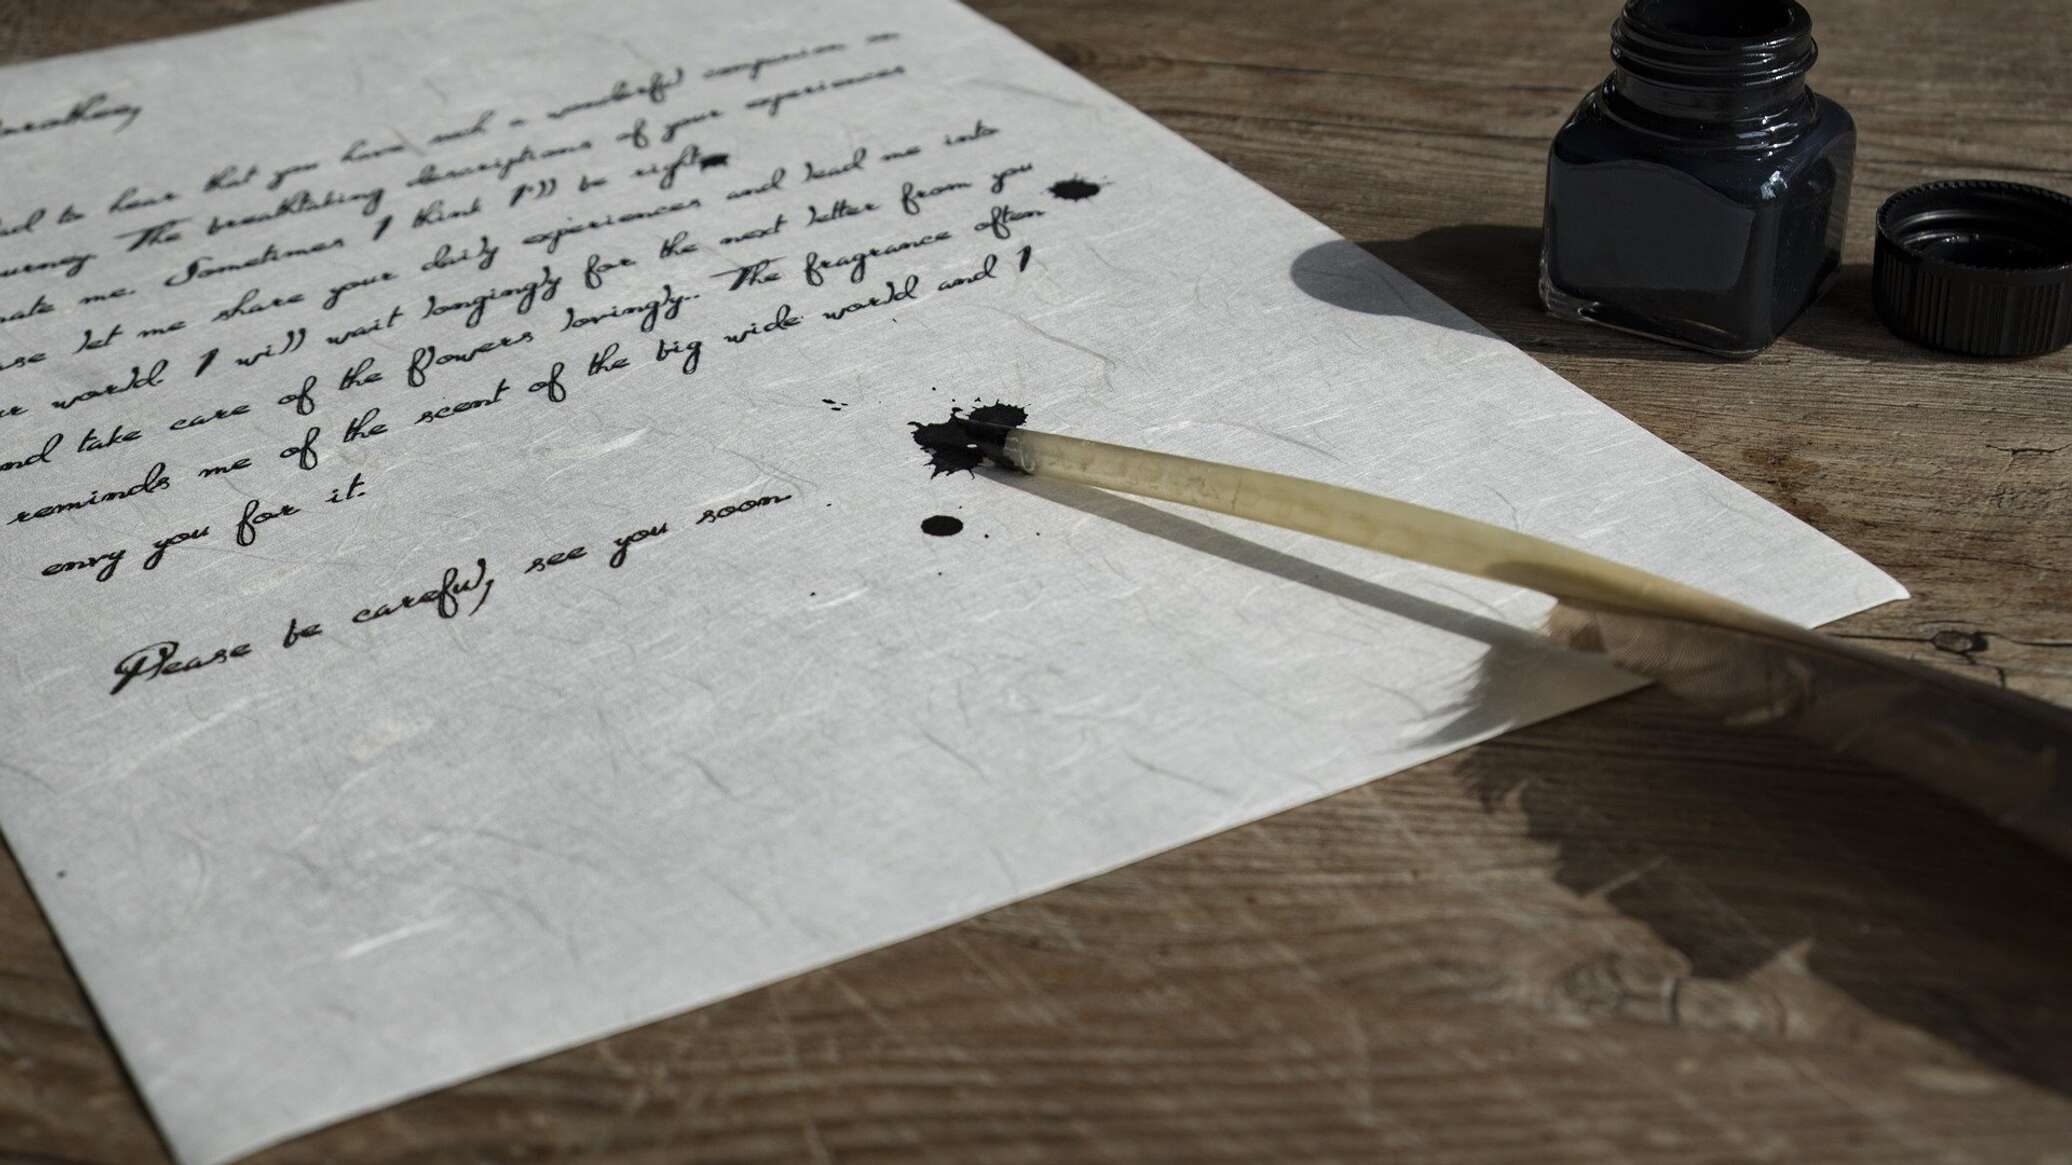 orothea,
ad to hear that you have such a wonderful companion on
urney. The breathtaking descriptions of your experiences
nate me. Sometimes I think I'll be right
ase let me share your daily experiences and lead me into
ur world. I will wait longingly for the next letter from you
nd take care of the flowers lovingly.. The fragrance often
reminds me of the scent of the big wide world and I
envy you for it.
Please be careful, see you soon